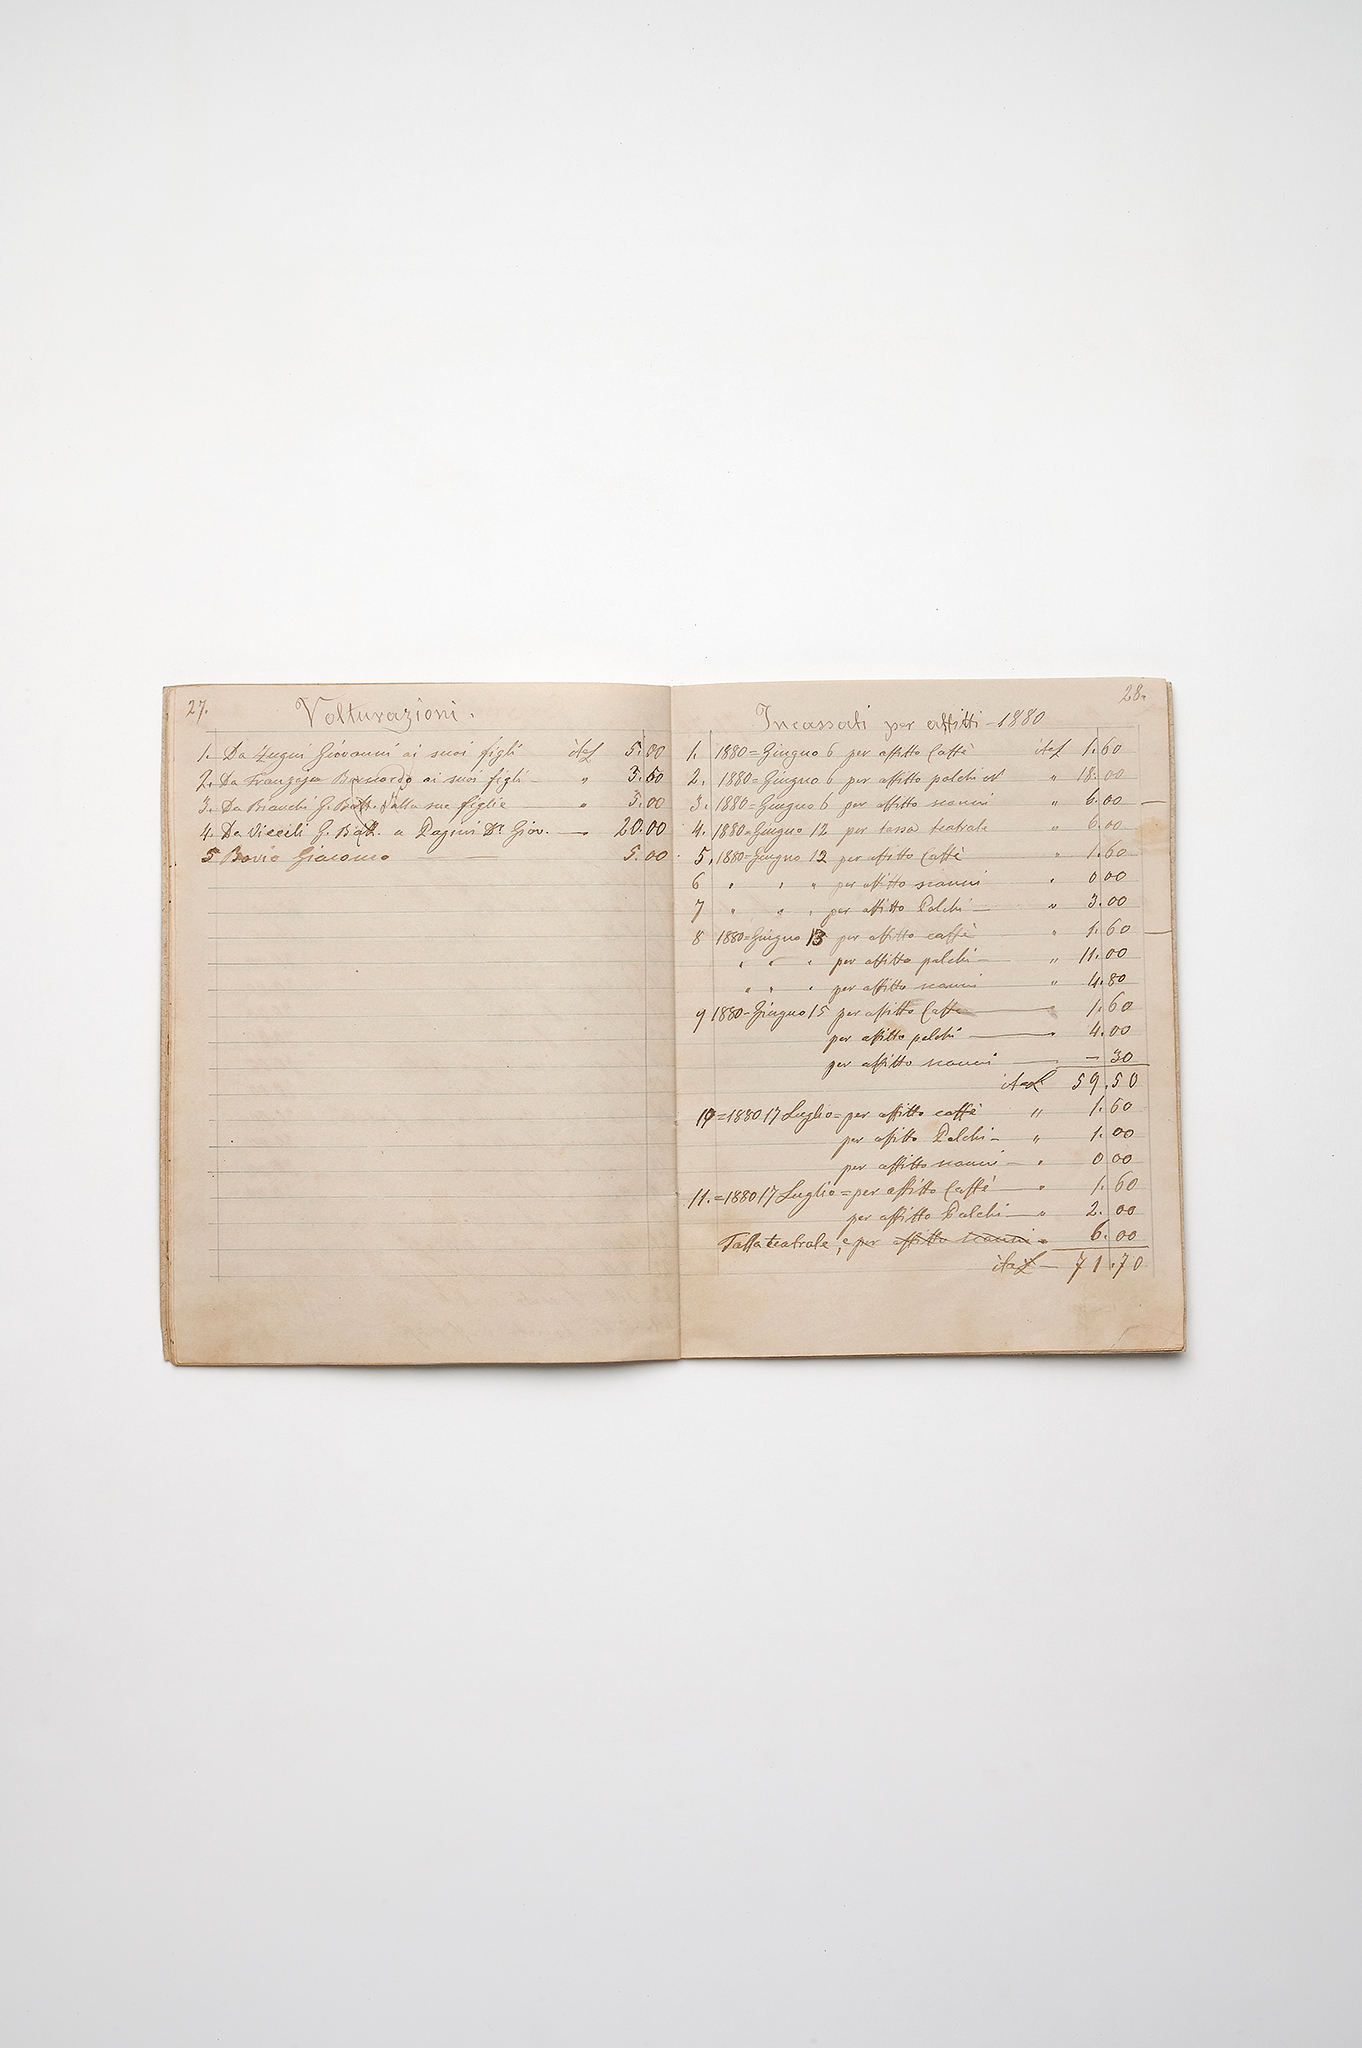 27.
Volturazioni.
1. Da Zugni Giovanni ai suoi figli it£ 5.00
2. Da Franzoja Bernardo ai suoi figli — " 3.50
3. Da Bianchi G. Batt. alla sue figlie — " 5.00
4. Da Viecili G. Batt. a Pagini Dr Giov. — 20.00
5 Bovio Giacomo — 5.00
28.
Incassati per affitti - 1880
1. 1880 = Giugno 6 per affitto Caffè it£ 1.60
2. 1880 = Giugno 6 per affitto palchi " 18.00
3. 1880 = Giugno 6 per affitto scanni " 6.00 —
4. 1880 = Giugno 12 per tassa teatrale " 6.00
5. 1880 = Giugno 12 per affitto Caffè " 1.60
6 " " " per affitto scanni " 0 00
7 " " " per affitto Palchi — " 3.00
8 1880 = Giugno 13 per affitto caffè " 1.60 —
" " " per affitto palchi — " 11.00
" " " per affitto scanni " 4.80
9 1880 = Giugno 15 per affitto Caffè — " 1.60
per affitto palchi — " 4.00
per affitto scanni — — 30
ita£ 59.50
= 1880 17 Luglio = per affitto caffè " 1.60
per affitto Palchi — " 1.00
per affitto scanni — " 0 00
11. = 1880 17 Luglio = per affitto Caffè — " 1.60
per affitto Palchi — " 2.00
Tassa teatrale, e per affitto scanni = 6.00
ita£ — 71.70